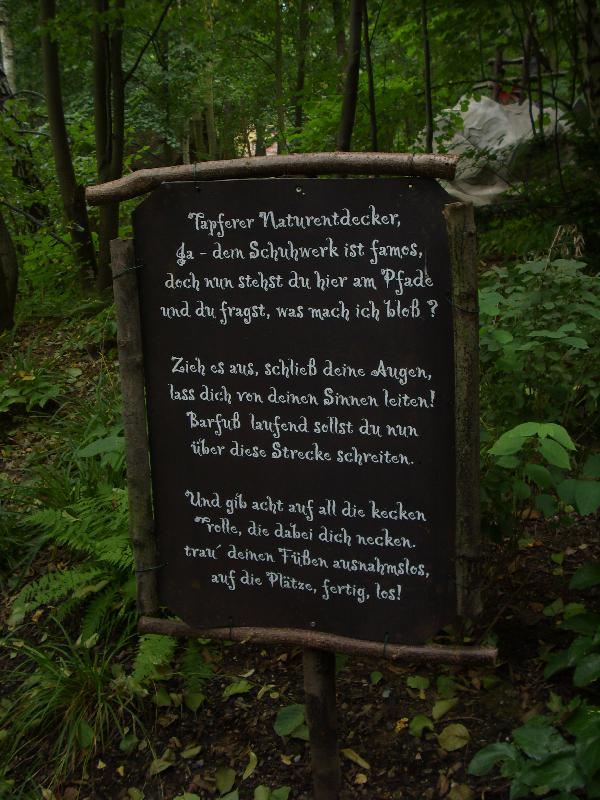 Tapferer Naturentdecker,
Ja - dem Schuhwerk ist famos,
doch nun stehst du hier am Pfade
und du fragst, was mach ich bloß ?
Zieh es aus, schließ deine Augen,
lass dich von deinen Sinnen leiten!
Barfuß laufend sollst du nun
über diese Strecke schreiten.
Und gib acht auf all die kecken
Trolle, die dabei dich necken.
trau´ deinen Füßen ausnahmslos,
auf die Plätze, fertig, los!